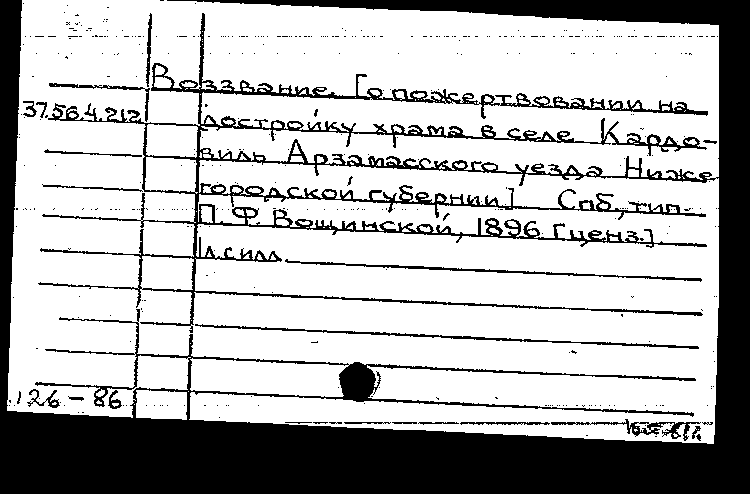 Воззвание. [о пожертвовании на
37.56.4.212 достройку храма в селе Кардо-
виль Арзамасского уезда Ниже-
городской губернии] Спб., тип.
П. Ф. Вощинской, 1896 [ценз.].
1 л. силл.
126 - 86